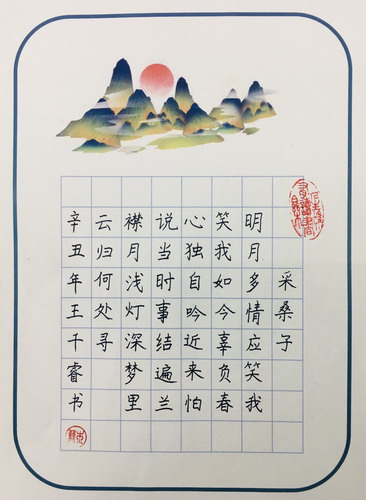 采桑子
明月多情应笑我
笑我如今辜负春
心独自吟近来怕
说当时事结遍兰
襟月浅灯深梦里
云归何处寻
辛丑年王千睿书